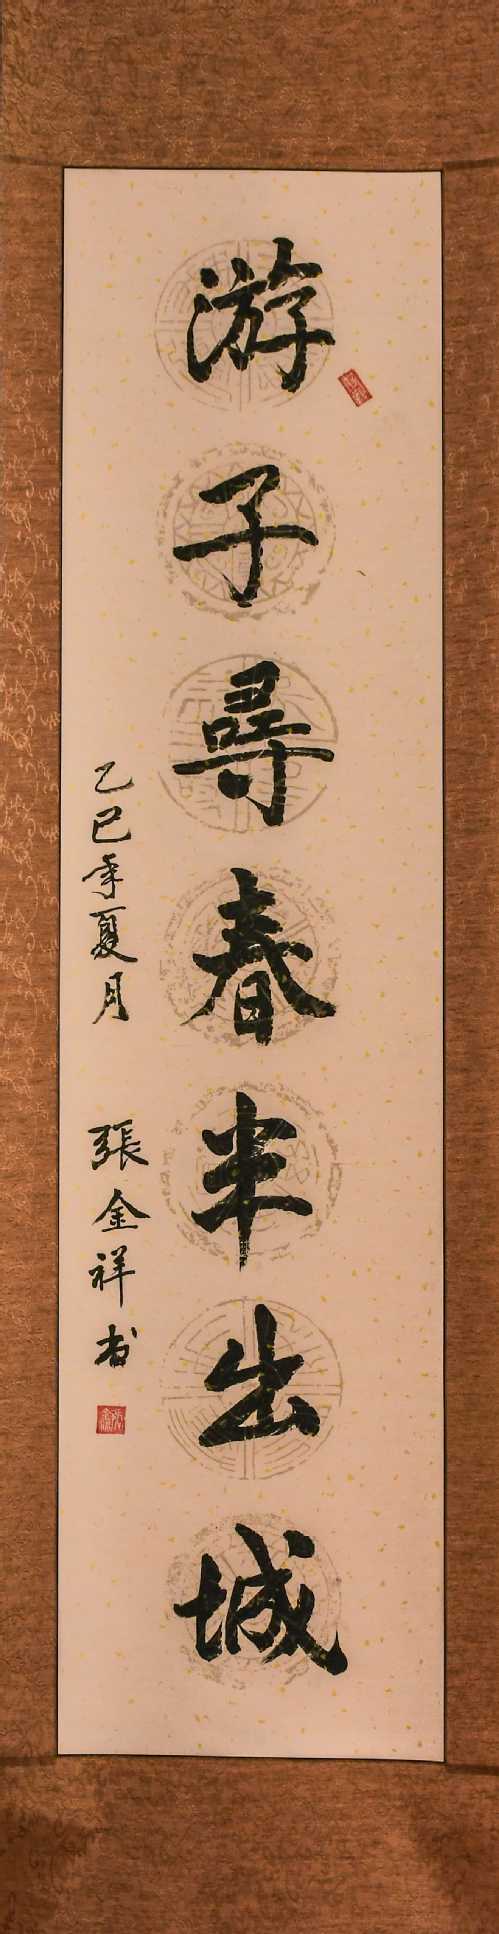 游子尋春半出城
乙巳年夏月 張金祥书